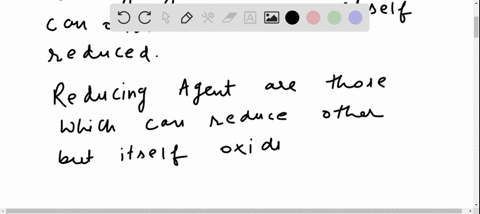 itself
can
reduced.
Reducing Agent are those
which can reduce other
but itself oxide